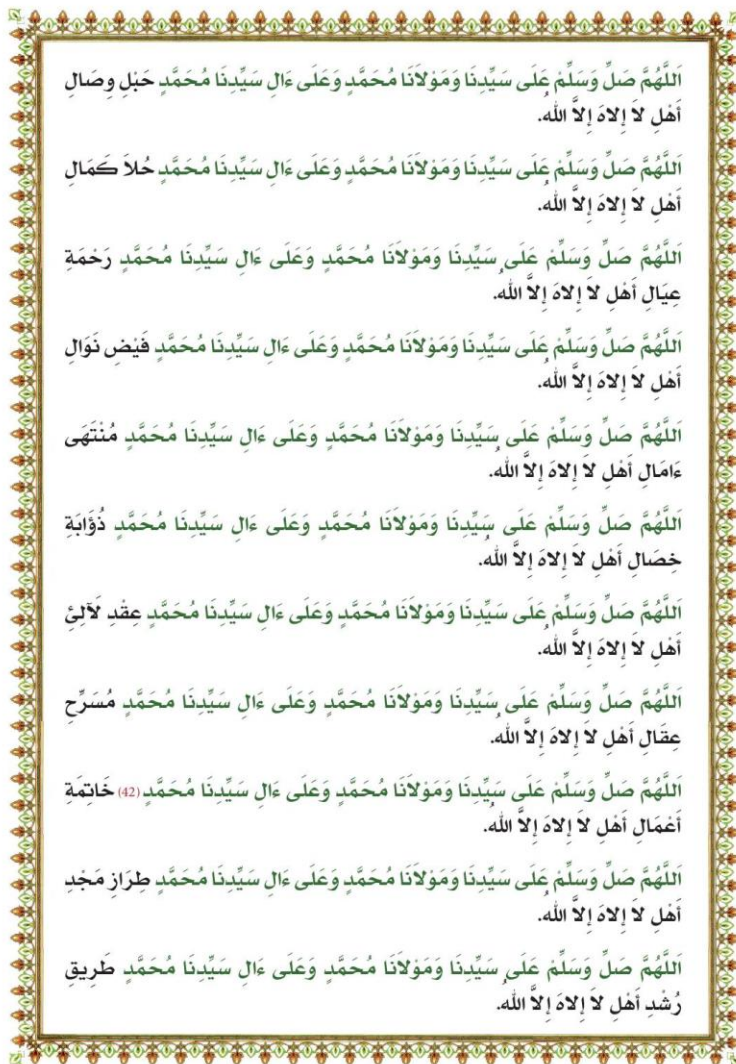 اَللَّهُمَّ صَلِّ وَسَلِّمْ عَلَى سَيِّدِنَا وَمَوْلاَنَا مُحَمَّدٍ وَعَلَى ءَالِ سَيِّدِنَا مُحَمَّدٍ حَبْلِ وِصَالِ
أَهْلِ لاَ إِلاهَ إِلاَّ اللهُ.
اَللَّهُمَّ صَلِّ وَسَلِّمْ عَلَى سَيِّدِنَا وَمَوْلاَنَا مُحَمَّدٍ وَعَلَى ءَالِ سَيِّدِنَا مُحَمَّدٍ حُلاَ كَمَالِ
أَهْلِ لاَ إِلاهَ إِلاَّ اللهُ.
اَللَّهُمَّ صَلِّ وَسَلِّمْ عَلَى سَيِّدِنَا وَمَوْلاَنَا مُحَمَّدٍ وَعَلَى ءَالِ سَيِّدِنَا مُحَمَّدٍ رَحْمَةِ
عِيَالِ أَهْلِ لاَ إِلاهَ إِلاَّ اللهُ.
اَللَّهُمَّ صَلِّ وَسَلِّمْ عَلَى سَيِّدِنَا وَمَوْلاَنَا مُحَمَّدٍ وَعَلَى ءَالِ سَيِّدِنَا مُحَمَّدٍ فَيْضِ نَوَالِ
أَهْلِ لاَ إِلاهَ إِلاَّ اللهُ.
اَللَّهُمَّ صَلِّ وَسَلِّمْ عَلَى سَيِّدِنَا وَمَوْلاَنَا مُحَمَّدٍ وَعَلَى ءَالِ سَيِّدِنَا مُحَمَّدٍ مُنْتَهَى
ءَامَالِ أَهْلِ لاَ إِلاهَ إِلاَّ اللهُ.
اَللَّهُمَّ صَلِّ وَسَلِّمْ عَلَى سَيِّدِنَا وَمَوْلاَنَا مُحَمَّدٍ وَعَلَى ءَالِ سَيِّدِنَا مُحَمَّدٍ ذُؤَابَةِ
خِصَالِ أَهْلِ لاَ إِلاهَ إِلاَّ اللهُ.
اَللَّهُمَّ صَلِّ وَسَلِّمْ عَلَى سَيِّدِنَا وَمَوْلاَنَا مُحَمَّدٍ وَعَلَى ءَالِ سَيِّدِنَا مُحَمَّدٍ عِقْدِ لَآلِئِ
أَهْلِ لاَ إِلاهَ إِلاَّ اللهُ.
اَللَّهُمَّ صَلِّ وَسَلِّمْ عَلَى سَيِّدِنَا وَمَوْلاَنَا مُحَمَّدٍ وَعَلَى ءَالِ سَيِّدِنَا مُحَمَّدٍ مُسَرِّحِ
عِقَالِ أَهْلِ لاَ إِلاهَ إِلاَّ اللهُ.
اَللَّهُمَّ صَلِّ وَسَلِّمْ عَلَى سَيِّدِنَا وَمَوْلاَنَا مُحَمَّدٍ وَعَلَى ءَالِ سَيِّدِنَا مُحَمَّدٍ (42) خَاتِمَةِ
أَعْمَالِ أَهْلِ لاَ إِلاهَ إِلاَّ اللهُ.
اَللَّهُمَّ صَلِّ وَسَلِّمْ عَلَى سَيِّدِنَا وَمَوْلاَنَا مُحَمَّدٍ وَعَلَى ءَالِ سَيِّدِنَا مُحَمَّدٍ طِرَازِ مَجْدِ
أَهْلِ لاَ إِلاهَ إِلاَّ اللهُ.
اَللَّهُمَّ صَلِّ وَسَلِّمْ عَلَى سَيِّدِنَا وَمَوْلاَنَا مُحَمَّدٍ وَعَلَى ءَالِ سَيِّدِنَا مُحَمَّدٍ طَرِيقِ
رُشْدِ أَهْلِ لاَ إِلاهَ إِلاَّ اللهُ.